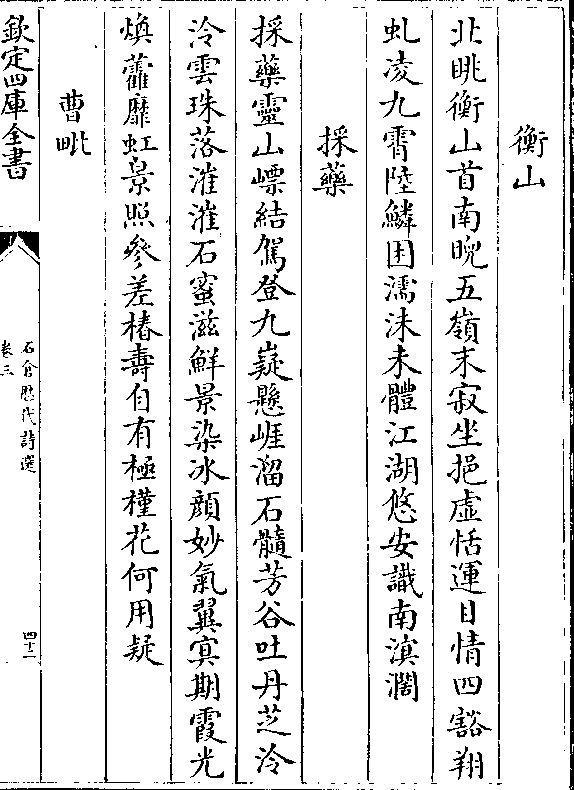 衡山
北眺衡山首南睨五嶺末寂坐挹虛恬運目情四豁翔
虬凌九霄陸鱗困濡沫未體江湖悠安識南溟濶
採藥
採藥靈山嶛結駕登九嶷懸崖溜石髓芳谷吐丹芝泠
泠雲珠落漼漼石蜜滋鮮景染冰顔妙氣翼冥期霞光
煥藿靡虹景照參差椿壽自有極槿花何用疑
曹毗
欽定四庫全書
石倉歴代詩選
卷三
四十二